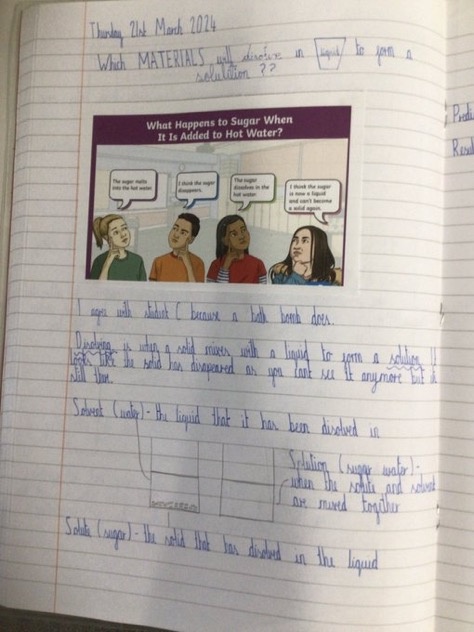 Thursday 21st March 2024
Which MATERIALS will disolve in liquid to form a
solution ??
What Happens to Sugar When
It Is Added to Hot Water?
The sugar melts
into the hot water.
I think the sugar
disappears.
The sugar
dissolves in the
hot water.
I think the sugar
is now a liquid
and can't become
a solid again.
I agree with student C because a bath bomb does.
Disolving is when a solid mixes with a liquid to form a solution. It
looks like the solid has disapeared as you cant see it anymore but its
still there.
Solvent (water) - the liquid that it has been disolved in
Solution (sugar water) -
when the solute and solvent
are mixed together
Solute (sugar) - the solid that has disolved in the liquid